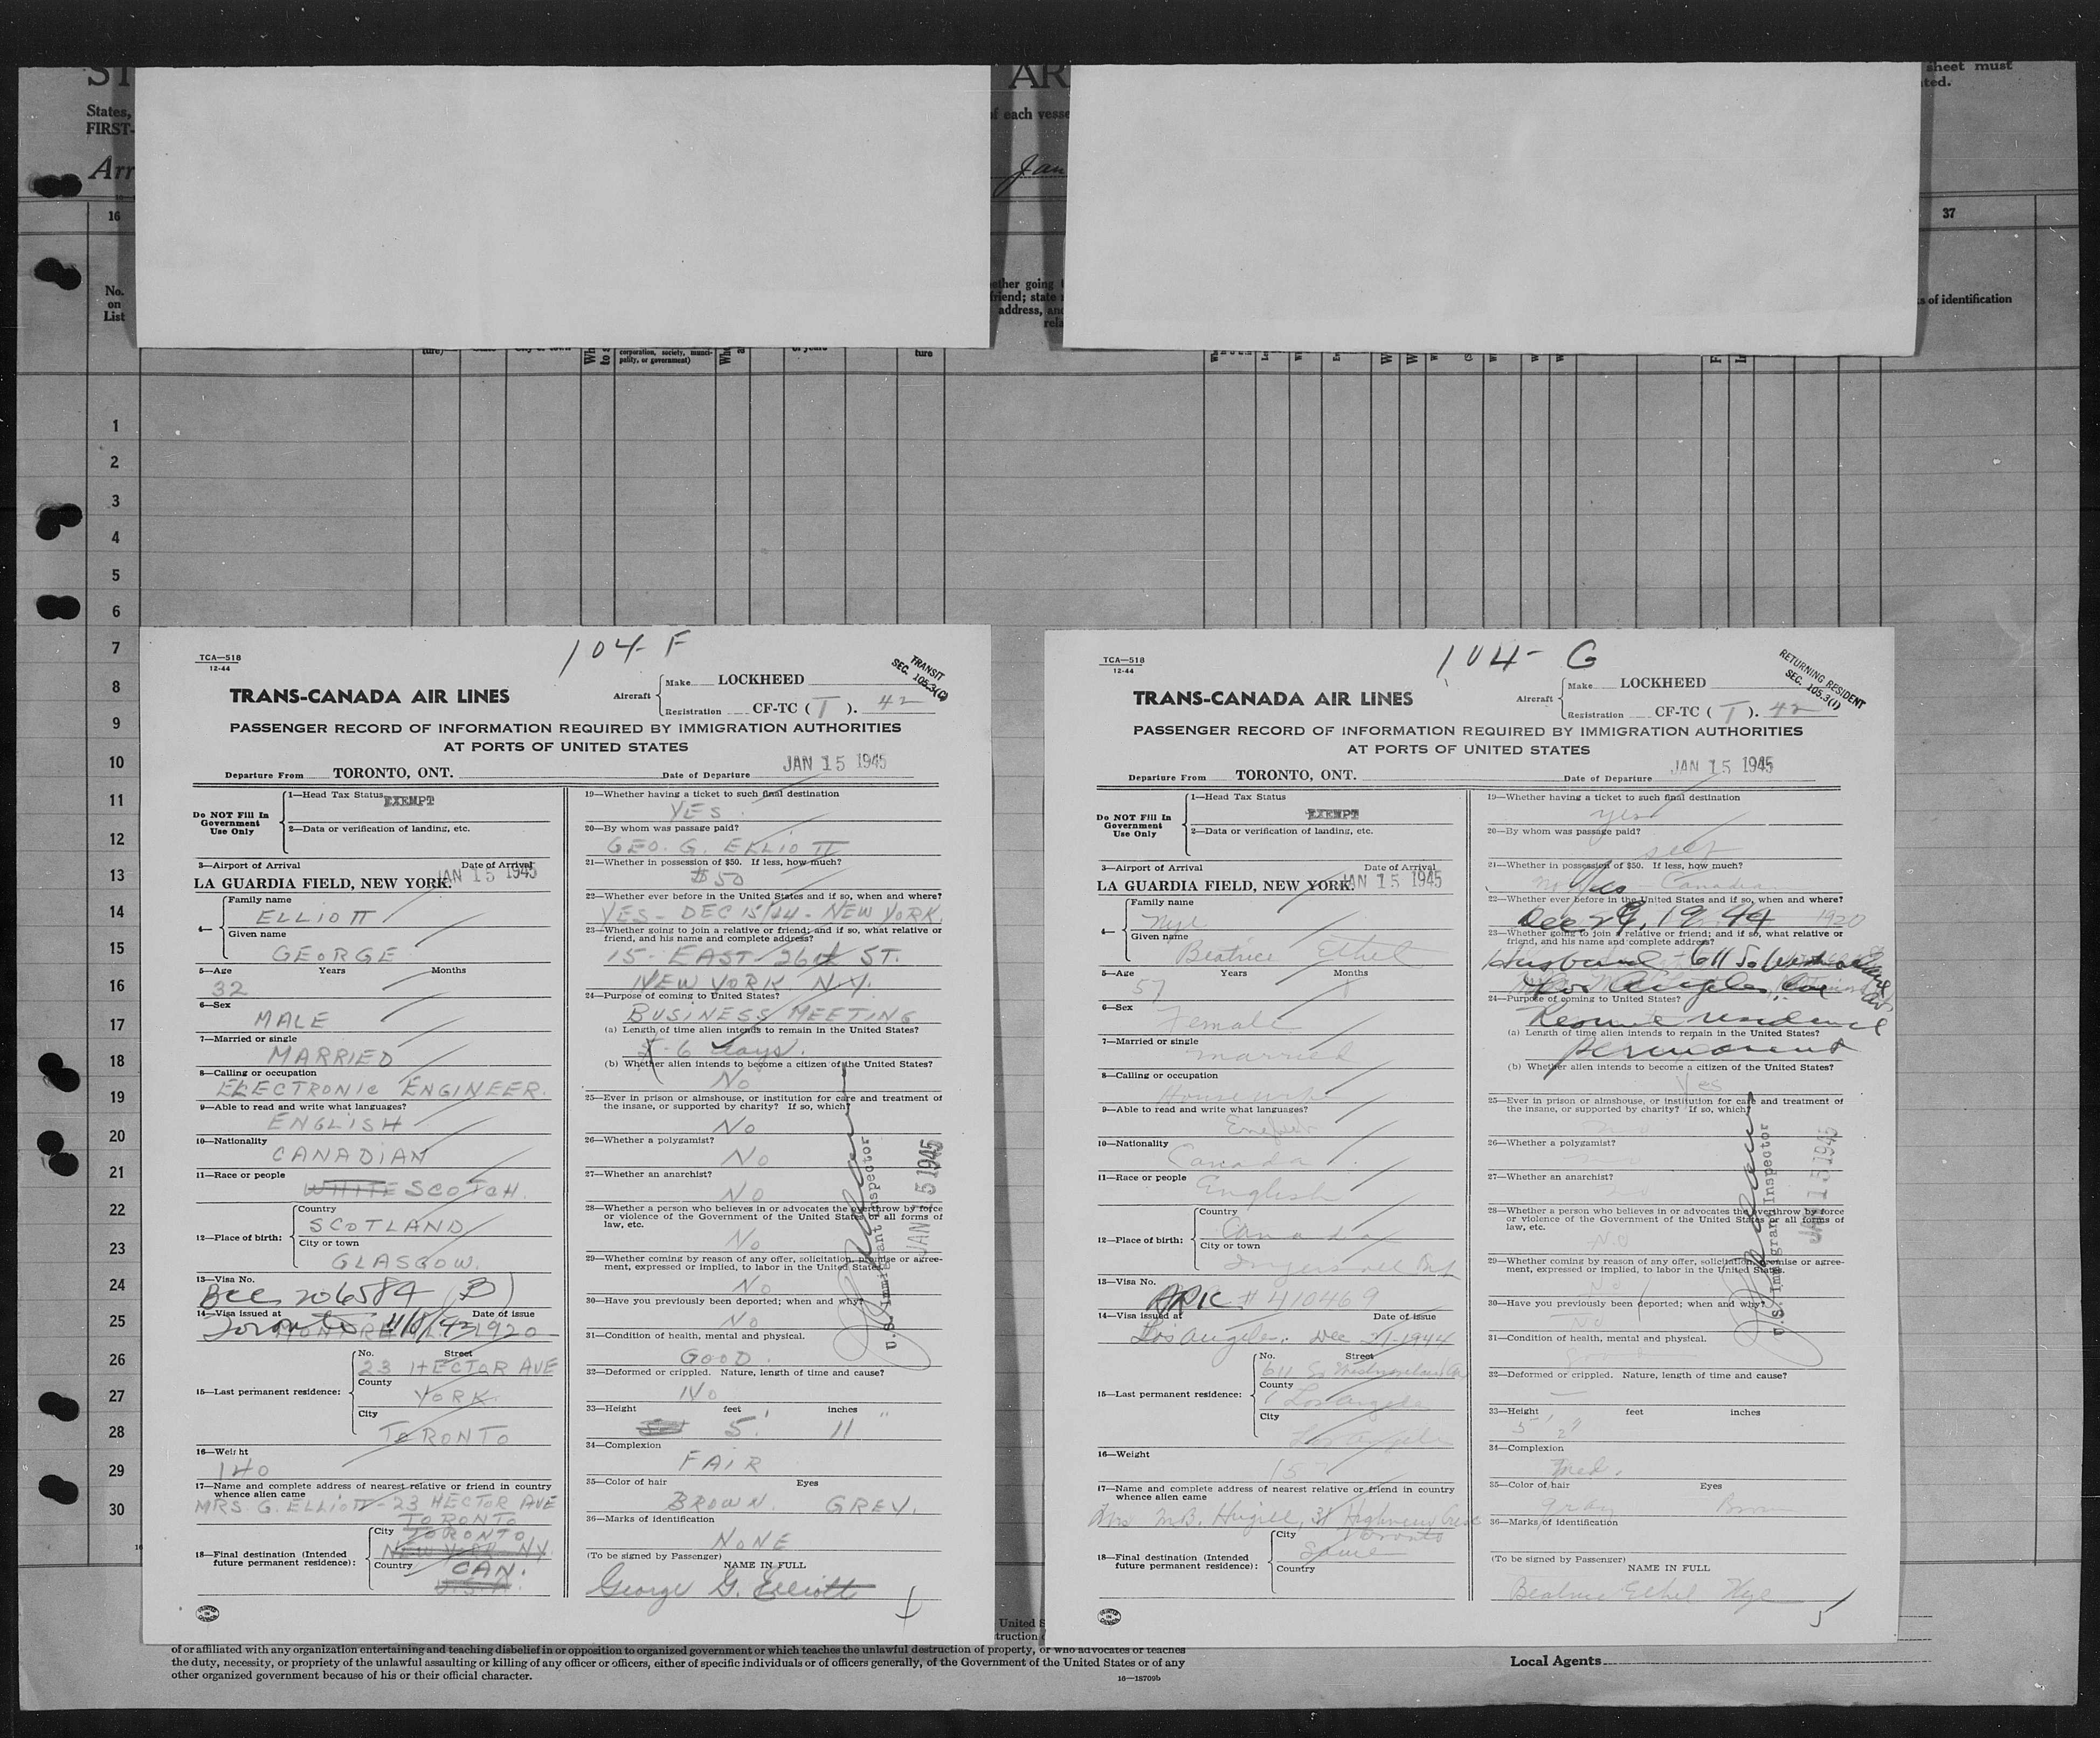 ST
AR
sheet must
ted.
States,
FIRST-
of each vesse
Arr
Jan
16
37
No.
on
List
ether going t
friend; state
address, and
rela
s of identification
ture)
corporation, society, munci-
pality, or government)
of years
ture
1
2
3
4
5
6
7
8
9
10
11
12
13
14
15
16
17
18
19
20
21
22
23
24
25
26
27
28
29
30
104-F
TCA—518
12-44
TRANSIT
SEC. 105.3(C)
TRANS-CANADA AIR LINES
Aircraft
Make LOCKHEED
Registration CF-TC ( T ). 42
PASSENGER RECORD OF INFORMATION REQUIRED BY IMMIGRATION AUTHORITIES
AT PORTS OF UNITED STATES
Departure From TORONTO, ONT. Date of Departure JAN 15 1945
Do NOT Fill In
Government
Use Only
1—Head Tax Status EXEMPT
2—Data or verification of landing, etc.
3—Airport of Arrival Date of Arrival
LA GUARDIA FIELD, NEW YORK. JAN 15 1945
4— Family name
ELLIOTT
Given name
GEORGE
5—Age Years Months
32
6—Sex
MALE
7—Married or single
MARRIED
8—Calling or occupation
ELECTRONIC ENGINEER.
9—Able to read and write what languages?
ENGLISH
10—Nationality
CANADIAN
11—Race or people
WHITE SCOTCH.
12—Place of birth:
Country
SCOTLAND
City or town
GLASGOW.
13—Visa No.
BCC 206584 (B)
14—Visa issued at Date of issue
Toronto 1920
15—Last permanent residence:
No. Street
23 HECTOR AVE
County
YORK
City
TORONTO
16—Weight
140
17—Name and complete address of nearest relative or friend in country
whence alien came
MRS. G. ELLIOTT-23 HECTOR AVE
TORONTO
18—Final destination (Intended
future permanent residence):
City TORONTO
NEW YORK NY.
Country CAN.
U.S.A.
19—Whether having a ticket to such final destination
YES.
20—By whom was passage paid?
GEO. G. ELLIOTT
21—Whether in possession of $50. If less, how much?
$50
22—Whether ever before in the United States and if so, when and where?
YES- DEC 15/44- NEW YORK.
23—Whether going to join a relative or friend; and if so, what relative or
friend, and his name and complete address?
15- EAST- 26th ST.
NEW YORK. N.Y.
24—Purpose of coming to United States?
BUSINESS MEETING
(a) Length of time alien intends to remain in the United States?
6 days.
(b) Whether alien intends to become a citizen of the United States?
No
25—Ever in prison or almshouse, or institution for care and treatment of
the insane, or supported by charity? If so, which?
No
26—Whether a polygamist?
No
27—Whether an anarchist?
No
28—Whether a person who believes in or advocates the overthrow by force
or violence of the Government of the United States or all forms of
law, etc.
No
29—Whether coming by reason of any offer, solicitation, promise or agree-
ment, expressed or implied, to labor in the United States.
No
30—Have you previously been deported; when and why?
No
31—Condition of health, mental and physical.
GOOD.
32—Deformed or crippled. Nature, length of time and cause?
No
33—Height feet inches
5' 11"
34—Complexion
FAIR
35—Color of hair Eyes
BROWN. GREY.
36—Marks of identification
NONE
(To be signed by Passenger)
NAME IN FULL
George G. Elliott
U.S. Immigrant Inspector
JAN 5 1945
104- G
TCA—518
12-44
RETURNING RESIDENT
SEC. 105.3(1)
TRANS-CANADA AIR LINES
Aircraft
Make LOCKHEED
Registration CF-TC ( T ). 42
PASSENGER RECORD OF INFORMATION REQUIRED BY IMMIGRATION AUTHORITIES
AT PORTS OF UNITED STATES
Departure From TORONTO, ONT. Date of Departure JAN 15 1945
Do NOT Fill In
Government
Use Only
1—Head Tax Status
EXEMPT
2—Data or verification of landing, etc.
3—Airport of Arrival Date of Arrival
LA GUARDIA FIELD, NEW YORK. JAN 15 1945
4— Family name
Nye
Given name
Beatrice Ethel
5—Age Years Months
57
6—Sex
Female
7—Married or single
married
8—Calling or occupation
Housewife
9—Able to read and write what languages?
English
10—Nationality
Canada
11—Race or people
English
12—Place of birth:
Country
Canada
City or town
Ingersoll Ont
13—Visa No.
# 410469
14—Visa issued at Date of issue
Los Angeles. Dec 1944
15—Last permanent residence:
No. Street
611 So Westmoreland Av
County
Los Angeles
City
Los Angeles
16—Weight
157
17—Name and complete address of nearest relative or friend in country
whence alien came
Mrs M.B. Hugill, 31 Cres
Toronto
18—Final destination (Intended
future permanent residence):
City
Same
Country
19—Whether having a ticket to such final destination
yes
20—By whom was passage paid?
self
21—Whether in possession of $50. If less, how much?
yes Canadian
22—Whether ever before in the United States and if so, when and where?
Dec 29, 1944 1920
23—Whether going to join a relative or friend; and if so, what relative or
friend, and his name and complete address?
Husband - 611 So Westmoreland
Los Angeles, Cal
24—Purpose of coming to United States?
Resume residence
(a) Length of time alien intends to remain in the United States?
permanent
(b) Whether alien intends to become a citizen of the United States?
Yes
25—Ever in prison or almshouse, or institution for care and treatment of
the insane, or supported by charity? If so, which?
no
26—Whether a polygamist?
no
27—Whether an anarchist?
no
28—Whether a person who believes in or advocates the overthrow by force
or violence of the Government of the United States or all forms of
law, etc.
No
29—Whether coming by reason of any offer, solicitation, promise or agree-
ment, expressed or implied, to labor in the United States.
No
30—Have you previously been deported; when and why?
No
31—Condition of health, mental and physical.
good
32—Deformed or crippled. Nature, length of time and cause?
—
33—Height feet inches
5' 2"
34—Complexion
Med.
35—Color of hair Eyes
gray Brown
36—Marks of identification
(To be signed by Passenger)
NAME IN FULL
Beatrice Ethel Nye
5
U.S. Immigrant Inspector
JAN 15 1945
United S
truction
of or affiliated with any organization entertaining and teaching disbelief in or opposition to organized government or which teaches the unlawful destruction of property, or who advocates or teaches
the duty, necessity, or propriety of the unlawful assaulting or killing of any officer or officers, either of specific individuals or of officers generally, of the Government of the United States or of any
other organized government because of his or their official character.
16—18709b
Local Agents